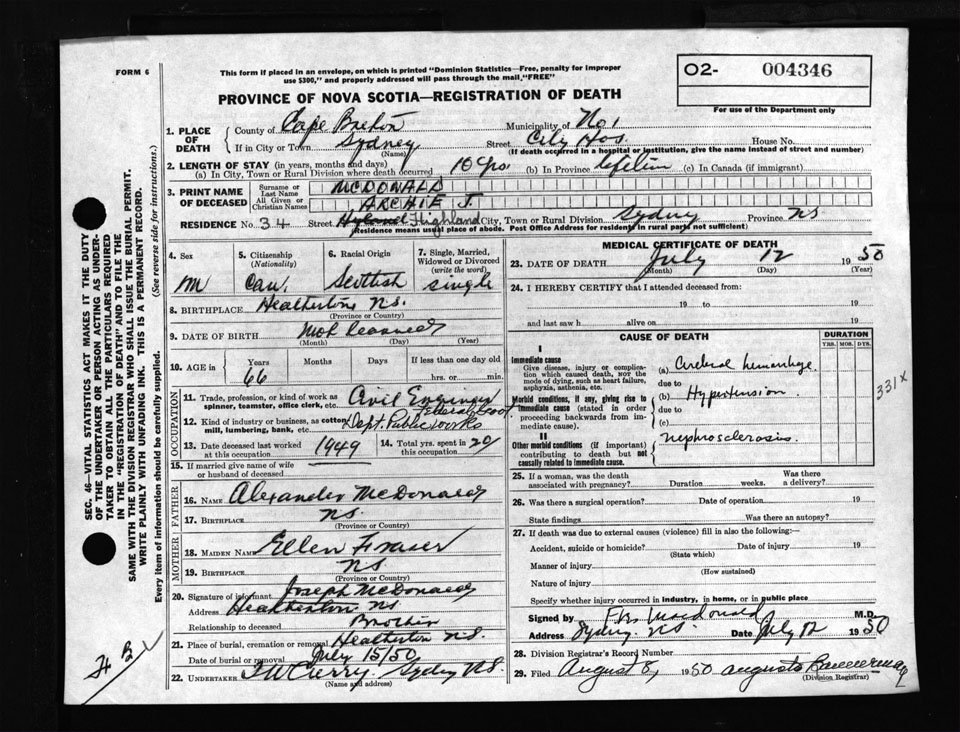 FORM 6
This form if placed in an envelope, on which is printed "Dominion Statistics—Free, penalty for improper
use $300," and properly addressed will pass through the mail, "FREE"
PROVINCE OF NOVA SCOTIA—REGISTRATION OF DEATH
O2- 004346
For use of the Department only
SEC. 46—VITAL STATISTICS ACT MAKES IT THE DUTY
OF THE UNDERTAKER OR PERSON ACTING AS UNDER-
TAKER TO OBTAIN ALL THE PARTICULARS REQUIRED
IN THE "REGISTRATION OF DEATH" AND TO FILE THE
SAME WITH THE DIVISION REGISTRAR WHO SHALL ISSUE THE BURIAL PERMIT.
WRITE PLAINLY WITH UNFADING INK. THIS IS A PERMANENT RECORD.
Every item of information should be carefully supplied. (See reverse side for instructions.)
1. PLACE OF DEATH
County of Cape Breton Municipality of No 1
If in City or Town Sydney Street City Hos. House No.
(Name) (If death occurred in a hospital or institution, give the name instead of street and number)
2. LENGTH OF STAY (in years, months and days)
(a) In City, Town or Rural Division where death occurred 10 yrs (b) In Province lifetime (c) In Canada (if immigrant)
3. PRINT NAME OF DECEASED
Surname or Last Name MCDONALD
All Given or Christian Names ARCHIE J.
RESIDENCE No. 34 Street Highland City, Town or Rural Division Sydney Province NS
(Residence means usual place of abode. Post Office Address for residents in rural parts not sufficient)
4. Sex M
5. Citizenship (Nationality) Can.
6. Racial Origin Scottish
7. Single, Married, Widowed or Divorced (write the word) single
8. BIRTHPLACE Heatherton N.S.
(Province or Country)
9. DATE OF BIRTH Not learned
(Month) (Day) (Year)
10. AGE in Years 66 Months Days If less than one day old hrs. or min.
OCCUPATION
11. Trade, profession, or kind of work as spinner, teamster, office clerk, etc. Civil Engineer
12. Kind of industry or business, as cotton mill, lumbering, bank, etc. Federal Govt. Dept. Public works
13. Date deceased last worked at this occupation 1949
14. Total yrs. spent in this occupation 20
15. If married give name of wife or husband of deceased
FATHER
16. Name Alexander McDonald
17. Birthplace N.S.
(Province or Country)
MOTHER
18. Maiden Name Ellen Fraser
19. Birthplace N.S.
(Province or Country)
20. Signature of informant Joseph McDonald
Address Heatherton N.S.
Relationship to deceased Brother
21. Place of burial, cremation or removal Heatherton N.S.
Date of burial or removal July 15/50
22. UNDERTAKER T W Curry, Sydney N.S.
(Name and address)
MEDICAL CERTIFICATE OF DEATH
23. DATE OF DEATH July 12 1950
(Month) (Day) (Year)
24. I HEREBY CERTIFY that I attended deceased from:
19 to 19
and last saw h alive on 19
CAUSE OF DEATH DURATION
YRS. MOS. DYS.
I
Immediate cause
Give disease, injury or complication which caused death, NOT the mode of dying, such as heart failure, asphyxia, asthenia, etc.
(a) Cerebral hemorrhage.
due to
Morbid conditions, if any, giving rise to immediate cause (stated in order proceeding backwards from immediate cause).
(b) Hypertension
due to
(c)
331X
II
Other morbid conditions (if important) contributing to death but not causally related to immediate cause.
nephrosclerosis.
25. If a woman, was the death associated with pregnancy? Duration weeks. Was there a delivery?
26. Was there a surgical operation? Date of operation 19
State findings Was there an autopsy?
27. If death was due to external causes (violence) fill in also the following:—
Accident, suicide or homicide? Date of injury 19
(State which)
Manner of injury
(How sustained)
Nature of injury
Specify whether injury occurred in industry, in home, or in public place
Signed by Macdonald M.D.
Address Sydney. N.S. Date July 12 1950
28. Division Registrar's Record Number
29. Filed August 8, 1950 Augusta Bannerman
(Division Registrar)